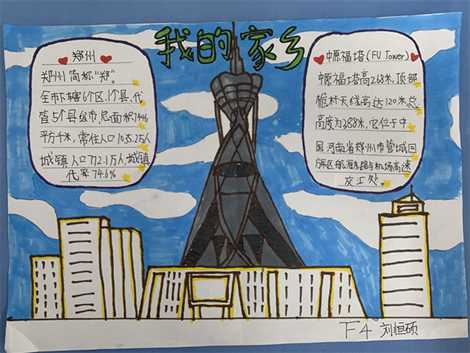 我的家乡
郑州
郑州简称"郑",
全市下辖6个区、1个县,代
管5个县级市,总面积7446
平方千米,常住人口1035.2万人
城镇人口772.1万人,城镇
化率74.6%
中原福塔(FU Tower)
中原福塔高268米,顶部
桅杆天线高达120米,总
高度为388米,它位于中
国河南省郑州市管城回
族区航海路与机场高速
交汇处。
F4 刘恒硕